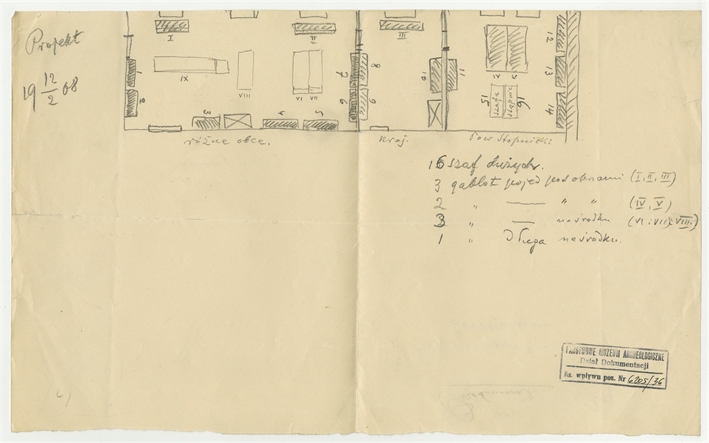 Projekt
19 12/2 08
I
II
III
IX
VIII
VI
VII
IV
V
1
2
3
4
5
6
7
8
9
10
11
12
13
14
15
16
szafa
stojąca
różne obce.
Kraj.
16 szaf dużych.
3 gablot pojed pod oknami (I, II, III)
2 " — " " (IV, V)
3 " — na środku (VI i VII i VIII.)
1 " Długa na środku.
PAŃSTWOWE MUZEUM ARCHEOLOGICZNE
Dział Dokumentacji
Ks. wpływu poz. Nr 6208/36